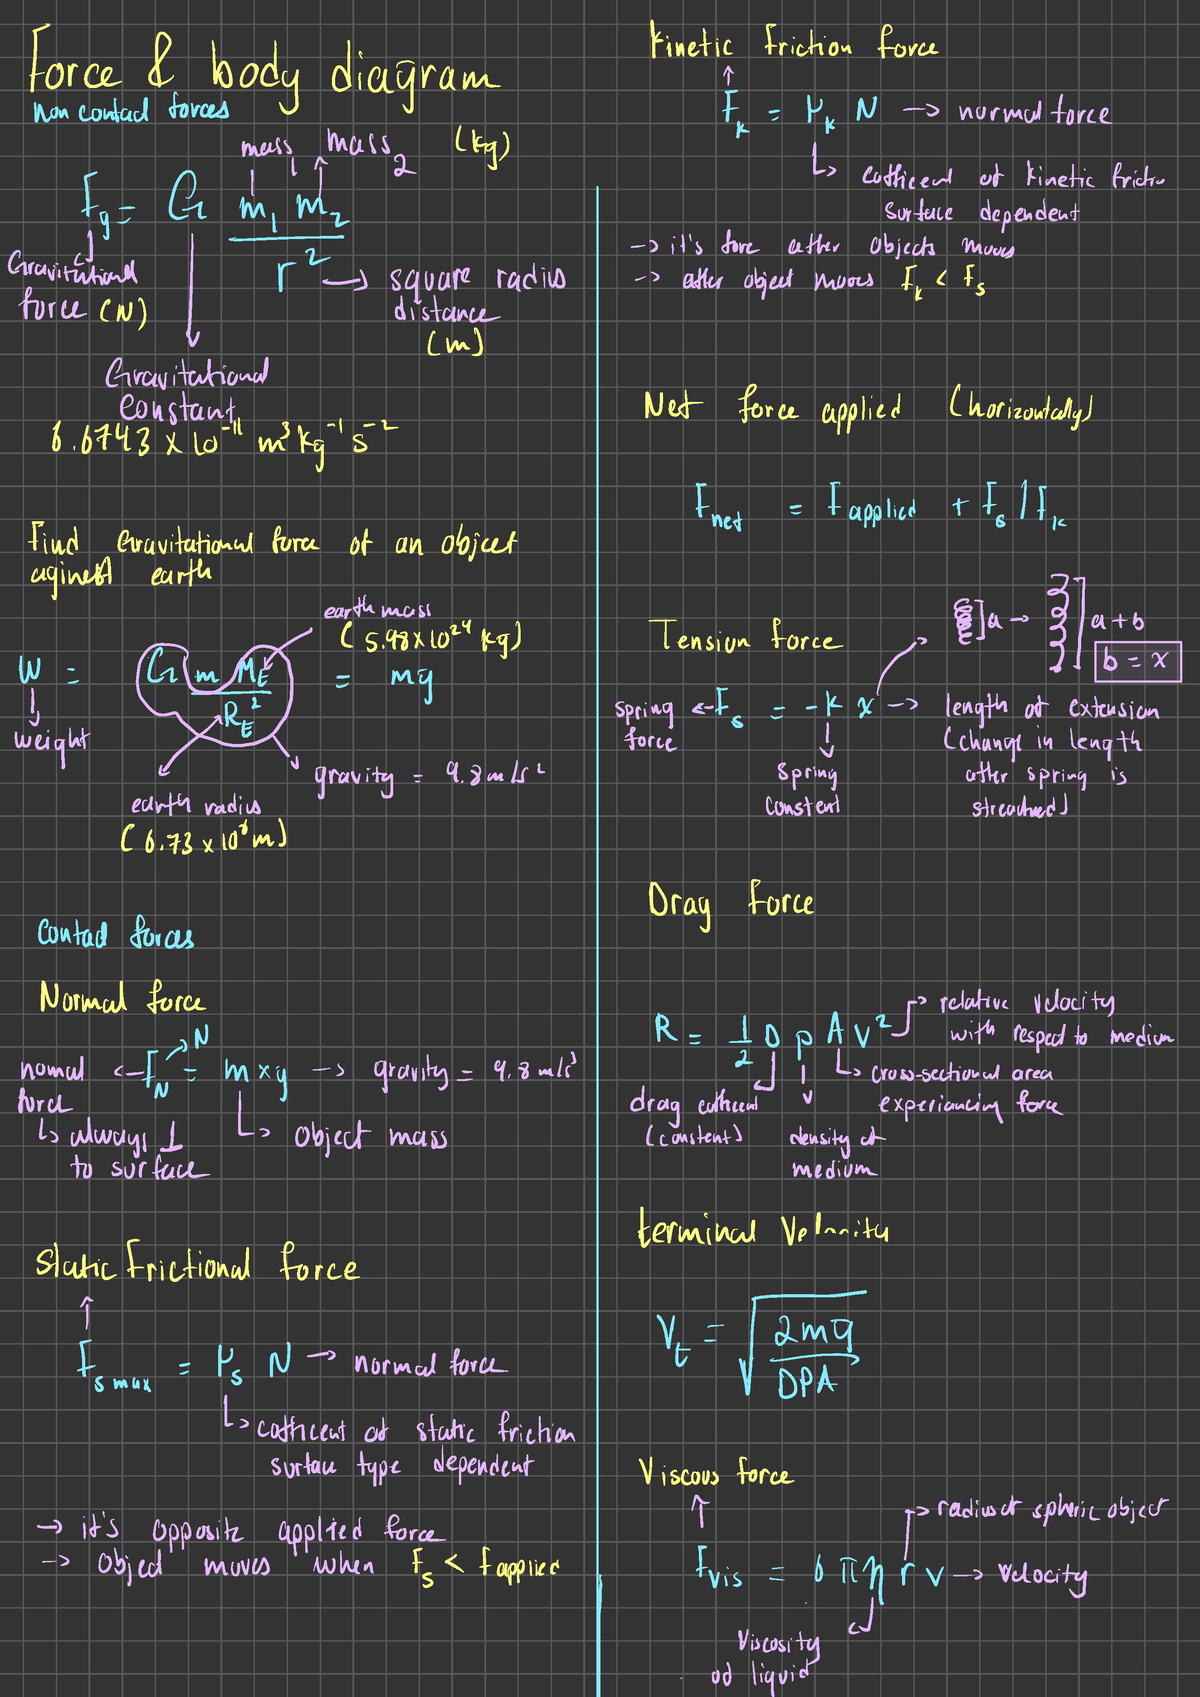 Force & body diagram
non contact forces
mass 1 mass 2 (kg)
Fg = G m₁ m₂ / r²
Gravitational force (N)
square radius distance (m)
Gravitational
constant
6.6743 x 10⁻¹¹ m³ kg⁻¹ s⁻²
Find Gravitational force of an object
aginest earth
earth mass
(5.98 x 10²⁴ kg)
W = G m M_E / R_E² = mg
weight
gravity = 9.8 m/s²
earth radius
(6.73 x 10⁶ m)
Contact forces
Normal force
N
normal force ← F_N = m x g → gravity = 9.8 m/s²
↳ always ⊥ to surface
↳ object mass
Static Frictional force
F_s max = μ_s N → normal force
↳ cofficent of static friction
surface type dependent
→ it's opposite applied force
→ object moves when F_s < F applied
Kinetic Friction force
F_k = μ_k N → normal force
↳ cofficent of kinetic frictio
surface dependent
→ it's force after objects moves
→ after object moves F_k < F_s
Net force applied (horizontally)
F_net = F applied + F_s / F_k
Tension force
a → a + b
b = x
spring force ← F_s = - k x → length of extension
(change in length
after spring is
streached)
spring
constent
Drag Force
R = ½ D ρ A v²
relative velocity
with respect to medium
cross-sectional area
experiancing force
drag cofficent
(constent)
density of
medium
terminal Velocity
V_t = √(2mg / DPA)
Viscous force
radius of spheric object
F_vis = 6 π η r v → velocity
Viscosity
od liquid